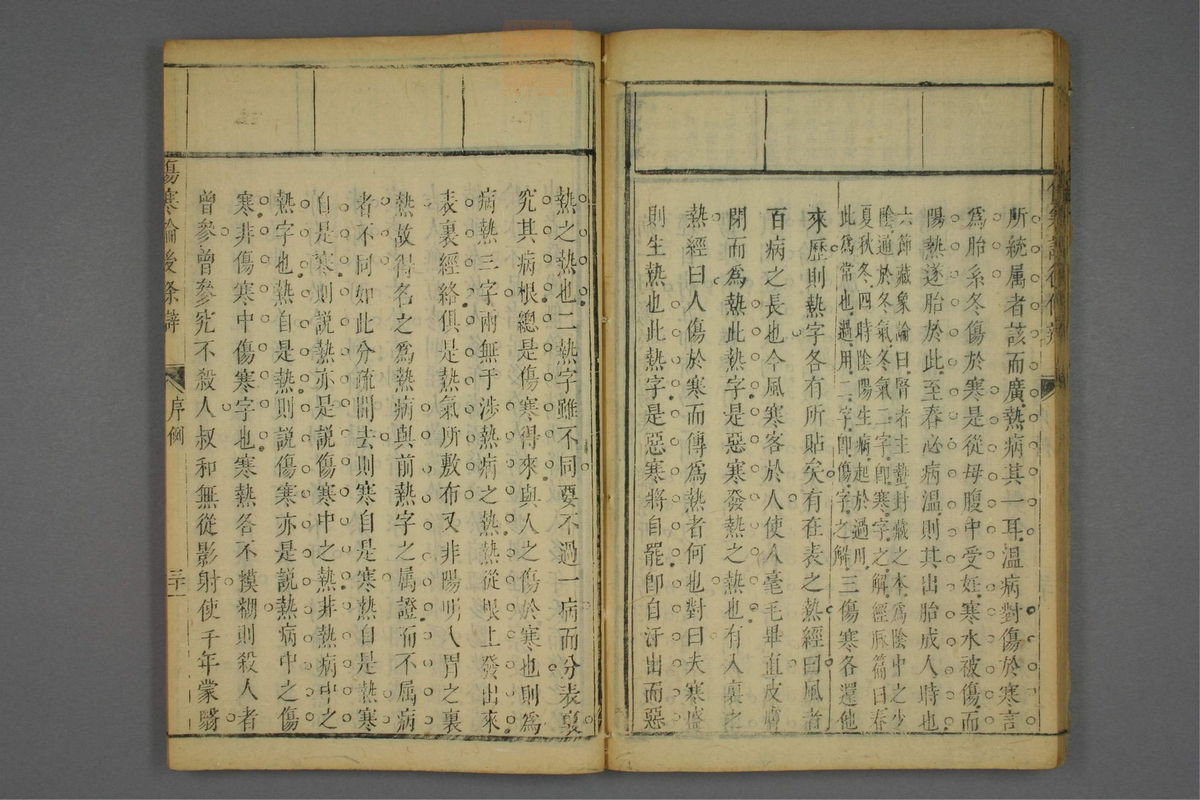 所統属者該而廣熱病其一耳溫病對傷於寒言
爲胎系冬傷於寒是從母腹中受妊寒水被傷而
陽熱遂胎於此至春必病溫則其出胎成人時也
六節藏象論曰腎者主蟄封藏之本爲陰中之少
陰通於冬氣冬氣二字卽寒字之解經脉篇曰春
夏秋冬四時陰陽生病起於過用
此爲常也過用二字卽傷字之解三傷寒各還他
來歷則熱字各有所貼矣有在表之熱經曰風者
百病之長也今風寒客於人使人毫毛畢直皮膚
閉而爲熱此熱字是惡寒發熱之熱也有入裏之
熱經曰人傷於寒而傳爲熱者何也對曰夫寒盛
則生熱也此熱字是惡寒將自罷卽自汗出而惡
熱之熱也二熱字雖不同要不過一病而分表裏
究其病根總是傷寒得來與人之傷於寒也則爲
病熱三字兩無干涉熱病之熱熱從根上發出來
表裏經絡俱是熱氣所敷布又非陽明入胃之裏
熱故得名之爲熱病與前熱字之属證而不属病
者不同如此分疏開去則寒自是寒熱自是熱寒
自是寒則説熱亦是説傷寒中之熱非熱病中之
熱字也熱自是熱則説傷寒亦是説熱病中之傷
寒非傷寒中傷寒字也寒熱各不模糊則殺人者
曾參曾參究不殺人叔和無從影射使千年蒙翳
傷寒論後條辯
序例
三十一